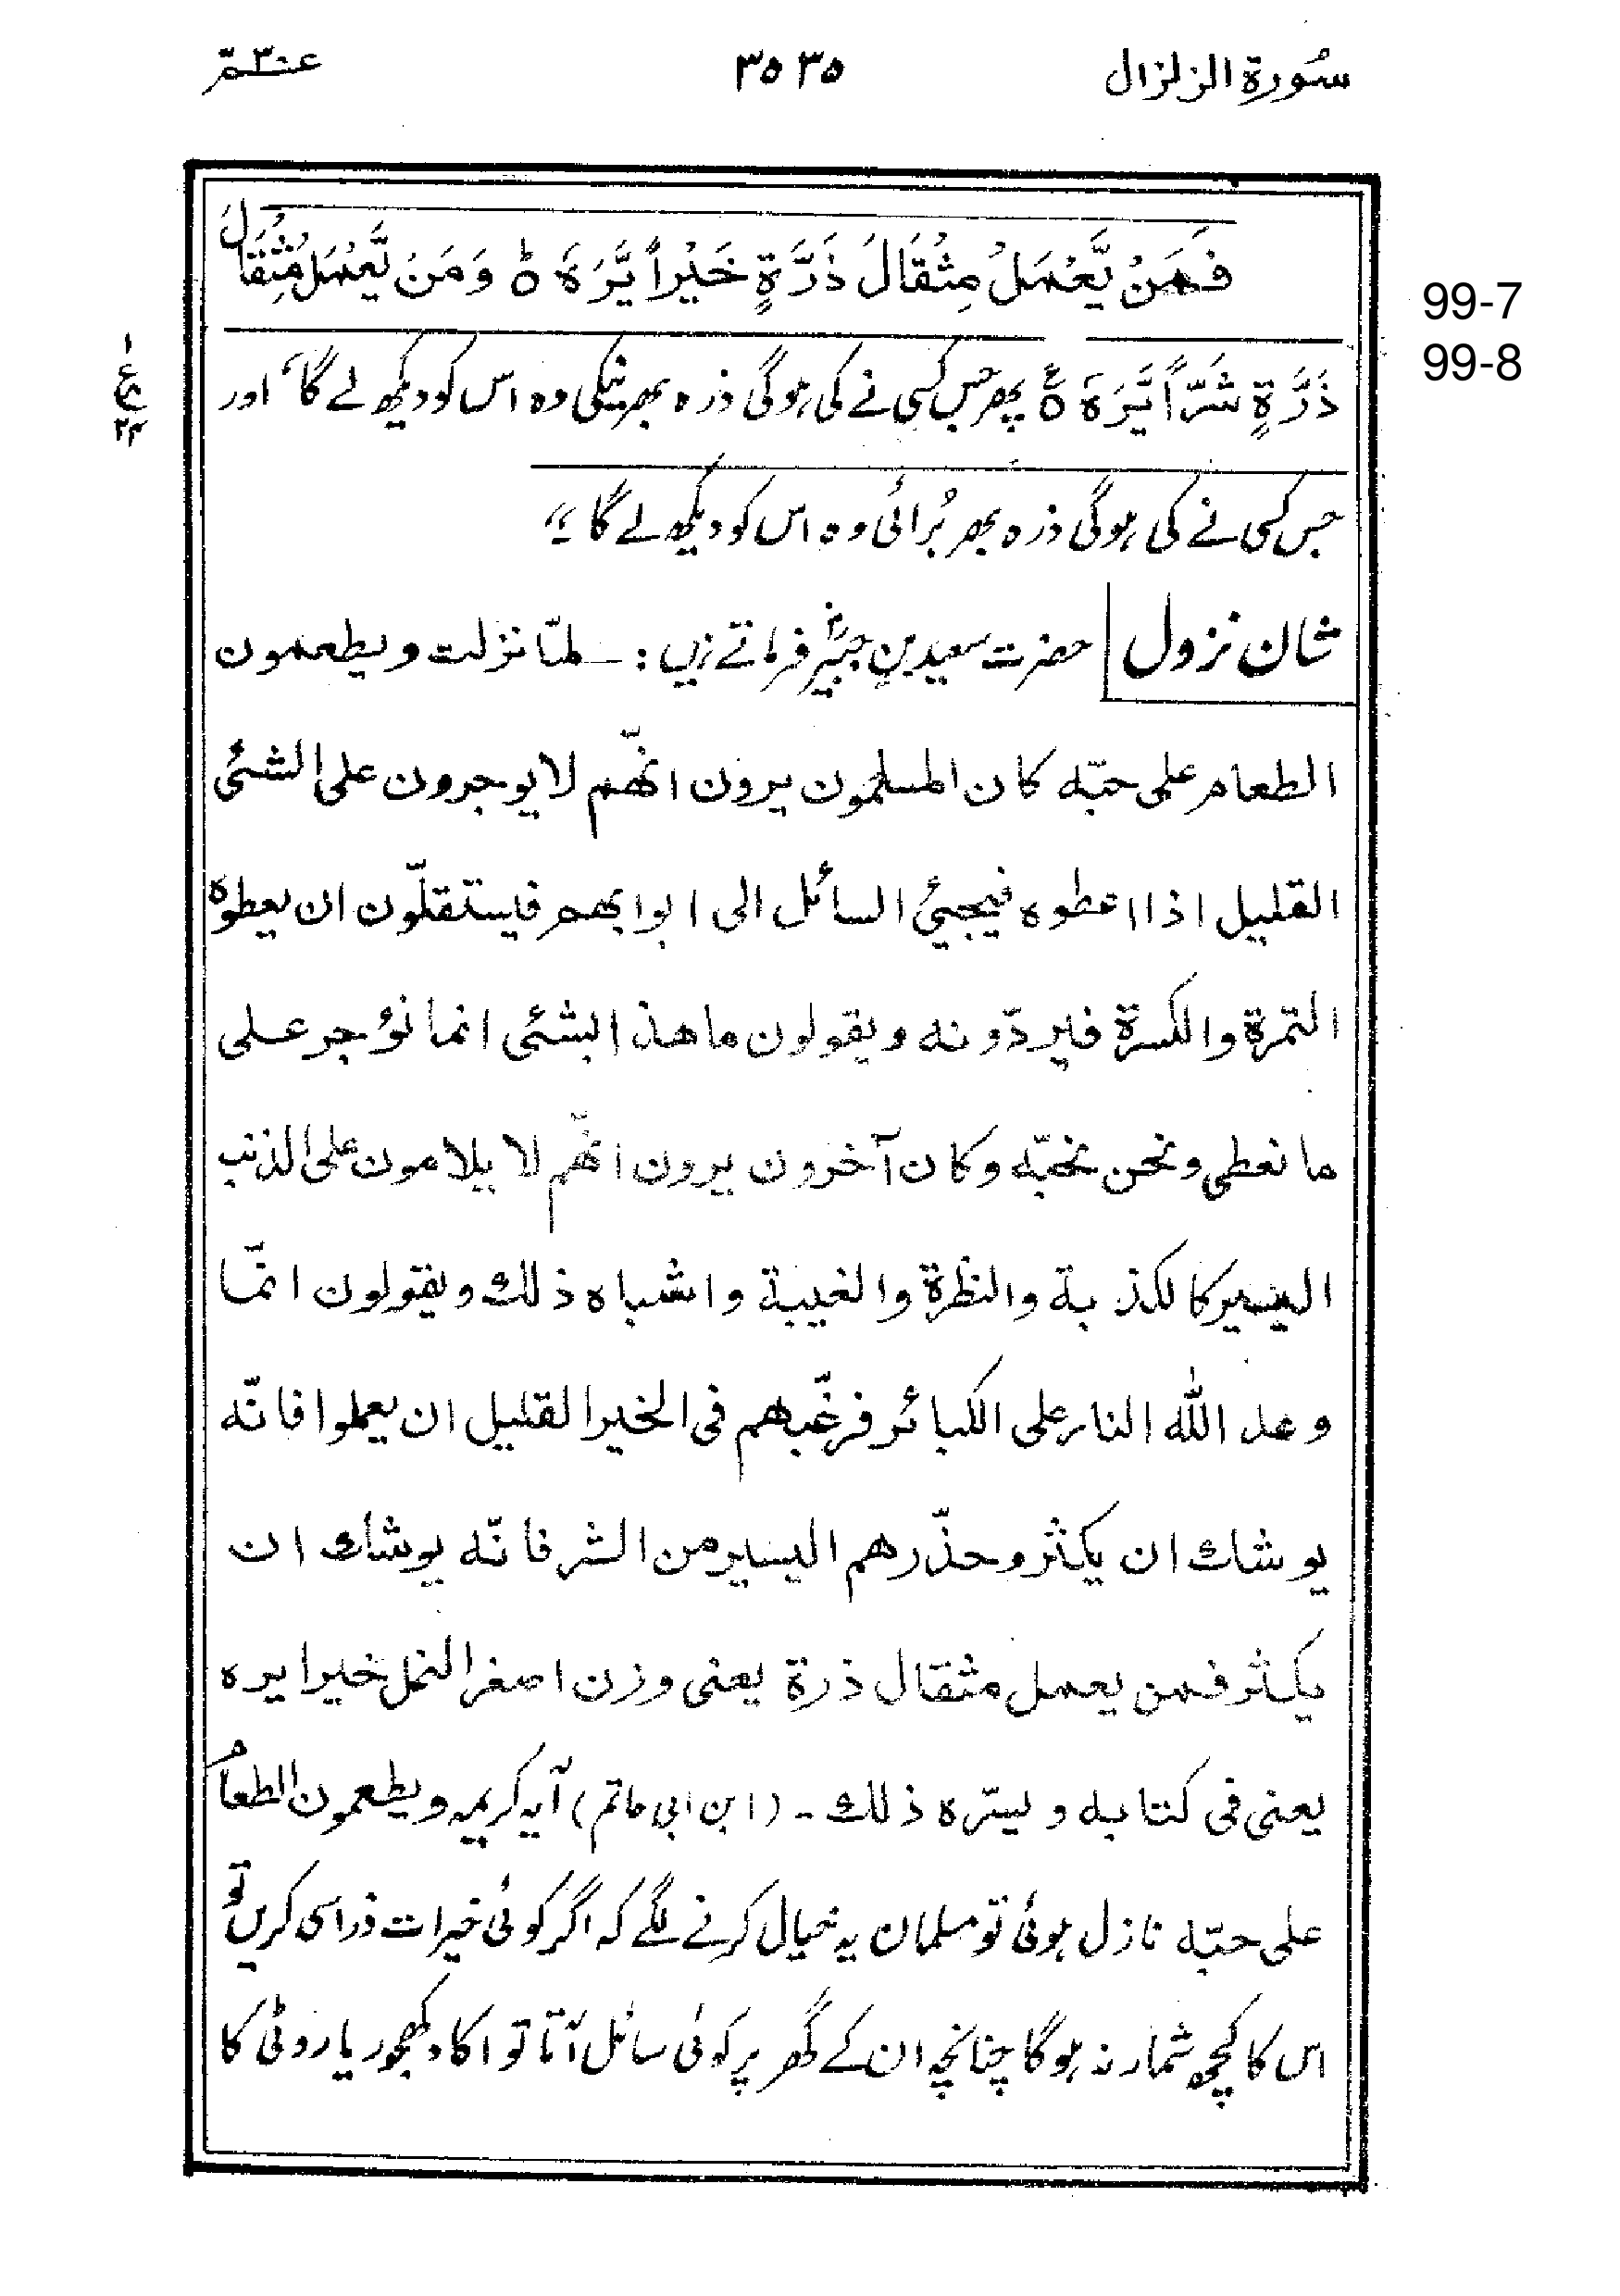 سُورۃ الزلزال
۳۵۳۵
عمّ ۳۰
فَمَنْ یَّعْمَلْ مِثْقَالَ ذَرَّةٍ خَیْراً یَّرَهٗ ؕ وَمَنْ یَّعْمَلْ مِثْقَالَ
99-7
99-8
ذَرَّةٍ شَرّاً یَّرَهٗ ۧ پھر جس کسی نے کی ہوگی ذرہ بھر نیکی وہ اس کو دیکھ لے گا، اور
۱
ع
۲۴
جس کسی نے کی ہوگی ذرہ بھر بُرائی وہ اس کو دیکھ لے گا ۔"
شان نزول حضرت سعید بن جبیرؓ فرماتے ہیں :۔ لمّا نزلت ویطعمون
الطعام علی حبّہ کان المسلمون یرون انھّم لا یوجرون علی الشئی
القلیل اذا اعطوہ فیجیئ السائل الی ابوابھم فیستقلّون ان یعطوہ
التمرۃ والکسرۃ فیردّونہ ویقولون ما ھذا بشئی انما نؤجر علی
ما نعطی ونحن نحبّہ وکان آخرون یرون انھّم لا یلامون علی الذنب
الیسیر کالکذبۃ والنظرۃ والغیبۃ واشباہ ذلک ویقولون انمّا
وعد اللہ النار علی الکبائر فرغّبھم فی الخیر القلیل ان یعملوا فانّہ
یوشک ان یکثر وحذّرھم الیسیر من الشر فانّہ یوشک ان
یکثر فمن یعمل مثقال ذرۃ یعنی وزن اصغر النمل خیرا یرہ
یعنی فی کتابہ ویسرّہ ذلک ۔ (ابن ابی حاتم) آیہ کریمہ ویطعمون الطعامُ
علی حبّہ نازل ہوئی تو مسلمان یہ خیال کرنے لگے کہ اگر کوئی خیرات ذرا سی کریں تو
اس کا کچھ شمار نہ ہوگا چنانچہ ان کے گھر پر کوئی سائل آتا تو اکا دکھجور یا روٹی کا